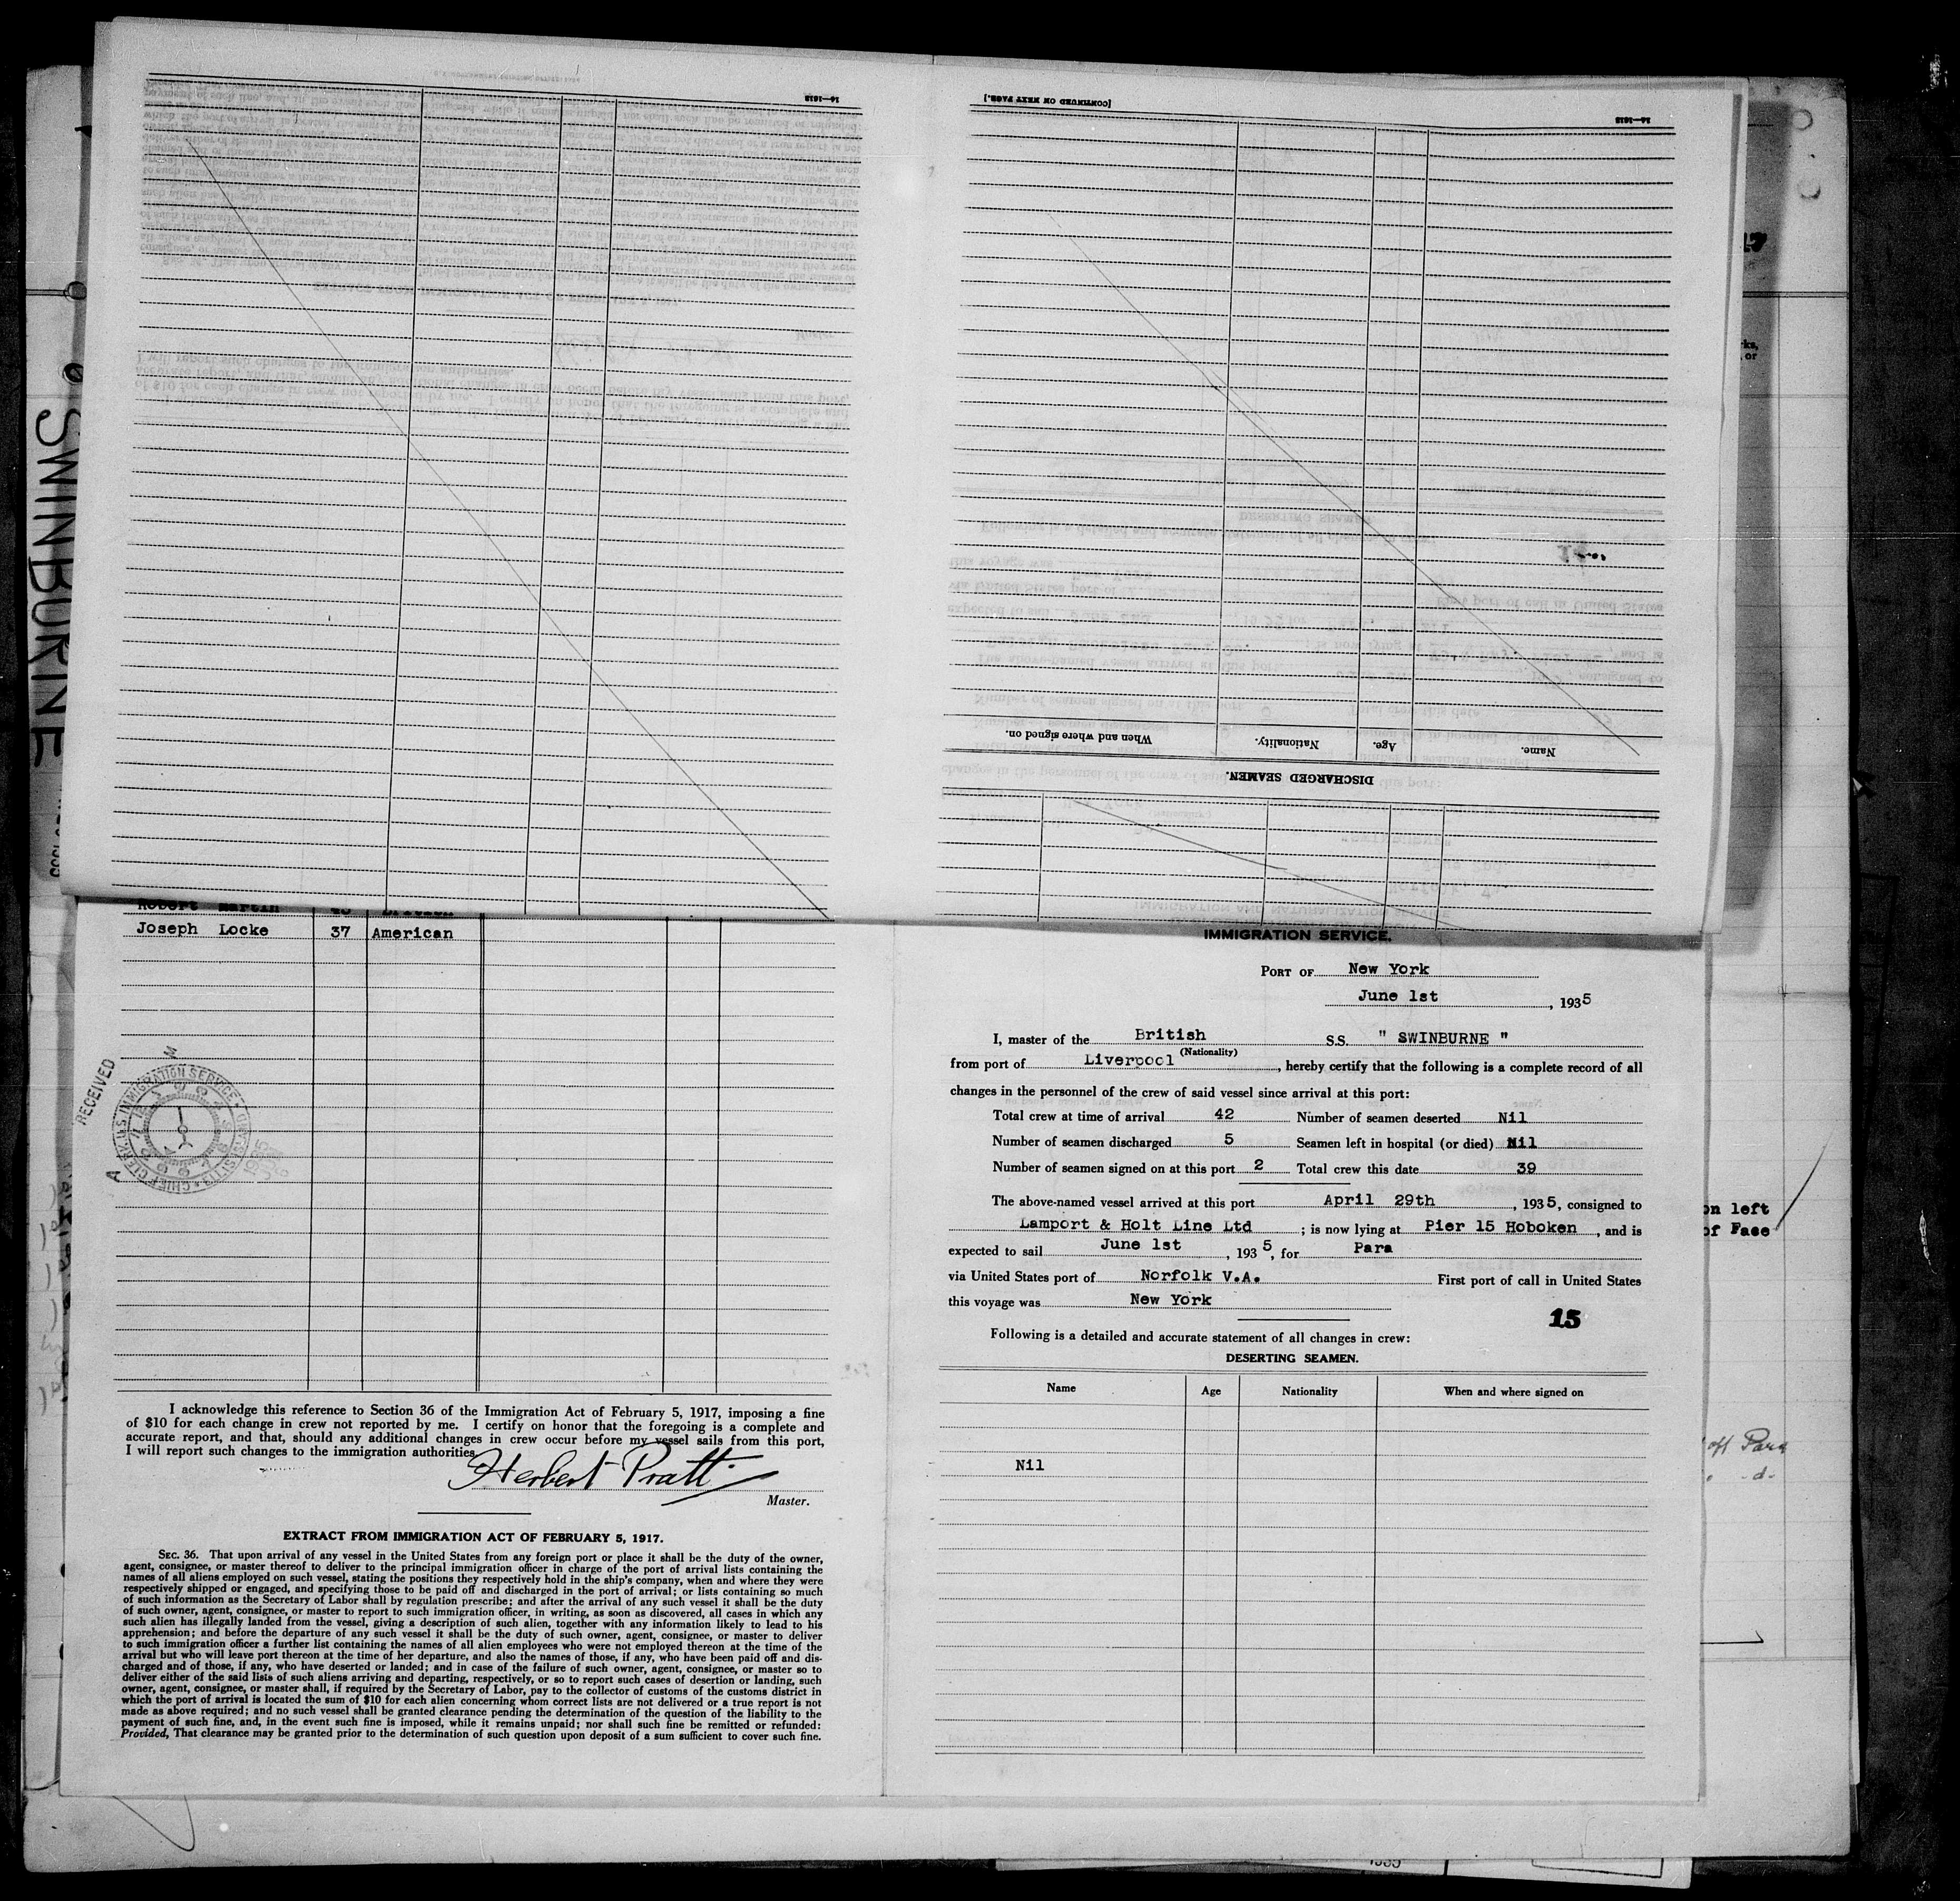 SWINBURNE
16—1618
[CONTINUED ON NEXT PAGE.]
16—1618
Name.
Age.
Nationality.
When and where signed on.
DISCHARGED SEAMEN.
Robert Martin
Joseph Locke 37 American
RECEIVED
I acknowledge this reference to Section 36 of the Immigration Act of February 5, 1917, imposing a fine
of $10 for each change in crew not reported by me. I certify on honor that the foregoing is a complete and
accurate report, and that, should any additional changes in crew occur before my vessel sails from this port,
I will report such changes to the immigration authorities.
Herbert Pratt
Master.
EXTRACT FROM IMMIGRATION ACT OF FEBRUARY 5, 1917.
SEC. 36. That upon arrival of any vessel in the United States from any foreign port or place it shall be the duty of the owner,
agent, consignee, or master thereof to deliver to the principal immigration officer in charge of the port of arrival lists containing the
names of all aliens employed on such vessel, stating the positions they respectively hold in the ship's company, when and where they were
respectively shipped or engaged, and specifying those to be paid off and discharged in the port of arrival; or lists containing so much
of such information as the Secretary of Labor shall by regulation prescribe; and after the arrival of any such vessel it shall be the duty
of such owner, agent, consignee, or master to report to such immigration officer, in writing, as soon as discovered, all cases in which any
such alien has illegally landed from the vessel, giving a description of such alien, together with any information likely to lead to his
apprehension; and before the departure of any such vessel it shall be the duty of such owner, agent, consignee, or master to deliver
to such immigration officer a further list containing the names of all alien employees who were not employed thereon at the time of the
arrival but who will leave port thereon at the time of her departure, and also the names of those, if any, who have been paid off and dis-
charged and of those, if any, who have deserted or landed; and in case of the failure of such owner, agent, consignee, or master so to
deliver either of the said lists of such aliens arriving and departing, respectively, or so to report such cases of desertion or landing, such
owner, agent, consignee, or master shall, if required by the Secretary of Labor, pay to the collector of customs of the customs district in
which the port of arrival is located the sum of $10 for each alien concerning whom correct lists are not delivered or a true report is not
made as above required; and no such vessel shall be granted clearance pending the determination of the question of the liability to the
payment of such fine, and, in the event such fine is imposed, while it remains unpaid; nor shall such fine be remitted or refunded:
Provided, That clearance may be granted prior to the determination of such question upon deposit of a sum sufficient to cover such fine.
IMMIGRATION SERVICE.
PORT OF New York
June 1st, 1935
I, master of the British S.S. " SWINBURNE "
(Nationality)
from port of Liverpool, hereby certify that the following is a complete record of all
changes in the personnel of the crew of said vessel since arrival at this port:
Total crew at time of arrival 42 Number of seamen deserted Nil
Number of seamen discharged 5 Seamen left in hospital (or died) Nil
Number of seamen signed on at this port 2 Total crew this date 39
The above-named vessel arrived at this port April 29th, 1935, consigned to
Lamport & Holt Line Ltd ; is now lying at Pier 15 Hoboken, and is
expected to sail June 1st, 1935, for Para
via United States port of Norfolk V.A. First port of call in United States
this voyage was New York
15
Following is a detailed and accurate statement of all changes in crew:
DESERTING SEAMEN.
Name Age Nationality When and where signed on
Nil
on left
of Face
off Para